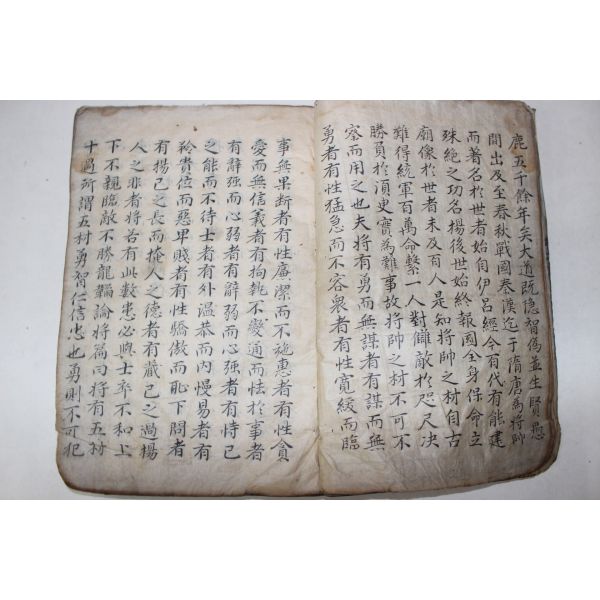 鹿五千餘年矣大道既隱智偽並生賢愚
間出及至春秋戰國秦漢迄于隋唐為將帥
而著名於世者始自伊呂經今百代有能建
殊絶之功名揚後世始終報國全身保命立
廟像於世者未及百人是知將帥之材自古
難得統軍百萬命繫一人對讎敵於咫尺決
勝負於須臾實為難事故將帥之材不可不
察而用之也夫將有勇而無謀者有謀而無
勇者有性猛急而不容衆者有性寛緩而臨
事無果断者有性廉潔而不施惠者有性貪
愛而無信義者有拘執不變通而怯於事者
有辞强而心弱者有辭弱而心强者有恃己
之能而不待士者有外温恭而内慢易者有
矜貴位而惡卑賤者有性驕傲而恥下問者
有揚己之長而掩人之德者有蔵己之過揚
人之非者將若有此數患必與士卒不和上
下不親臨敵不勝龍韜論將篇曰將有五材
十過所謂五材勇智仁信忠也勇則不可犯